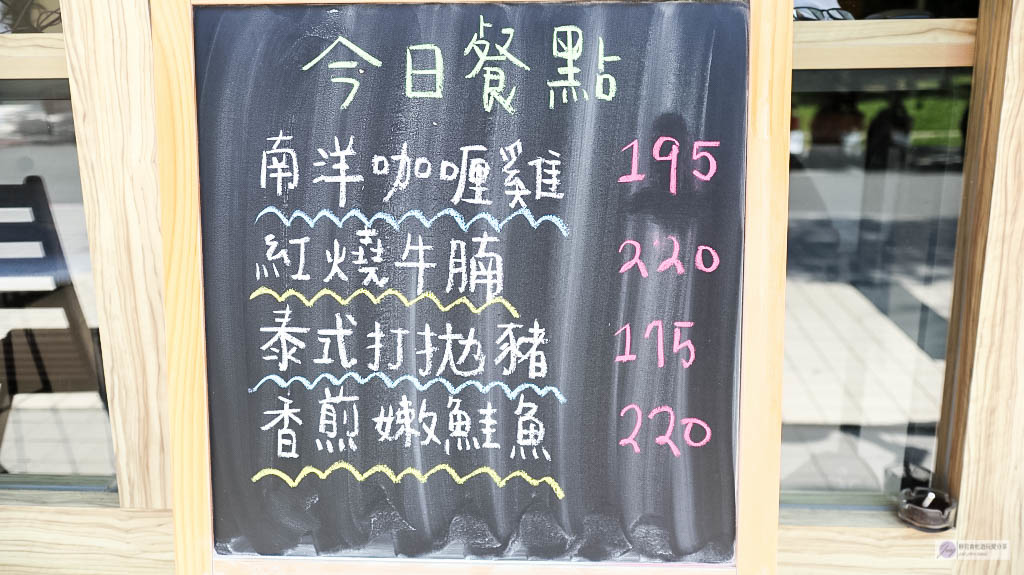 今日餐點
南洋咖喱雞 195
紅燒牛腩 220
泰式打拋豬 175
香煎嫩鮭魚 220